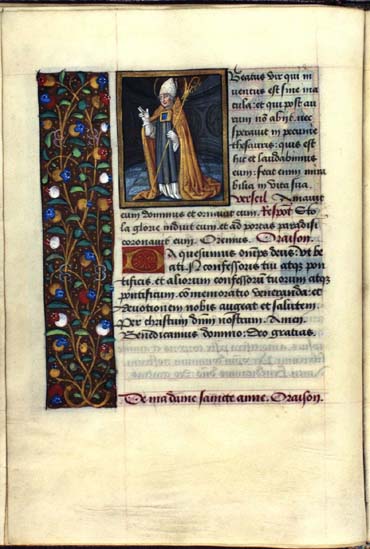 Beatus vir qui in
uentus est sine ma
cula: et qui post au
rum nō abijt. nec
sperauit in pecunie
thesauris: quis est
hic et laudabimus
eum: fecit enim mira
bilia in vita sua.
Verseil. Amauit
eum dominus et ornauit eum. Respōs. Sto
la glorie induit eum. et ad portas paradisi
coronauit eum. Oremus. Oraison.
DA quesumus omp̄s deus: vt be
ati. N. confessoris tui atqȝ pon
tificis. et aliorum confessorū tuorum atqȝ
pontificum. cōmemoratio veneranda: et
deuotionem nobis augeat et salutem.
Per christum dn̄m nostrum. Amen.
Benedicamus domino: Deo gratias.
De madame saincte anne. Oraison.